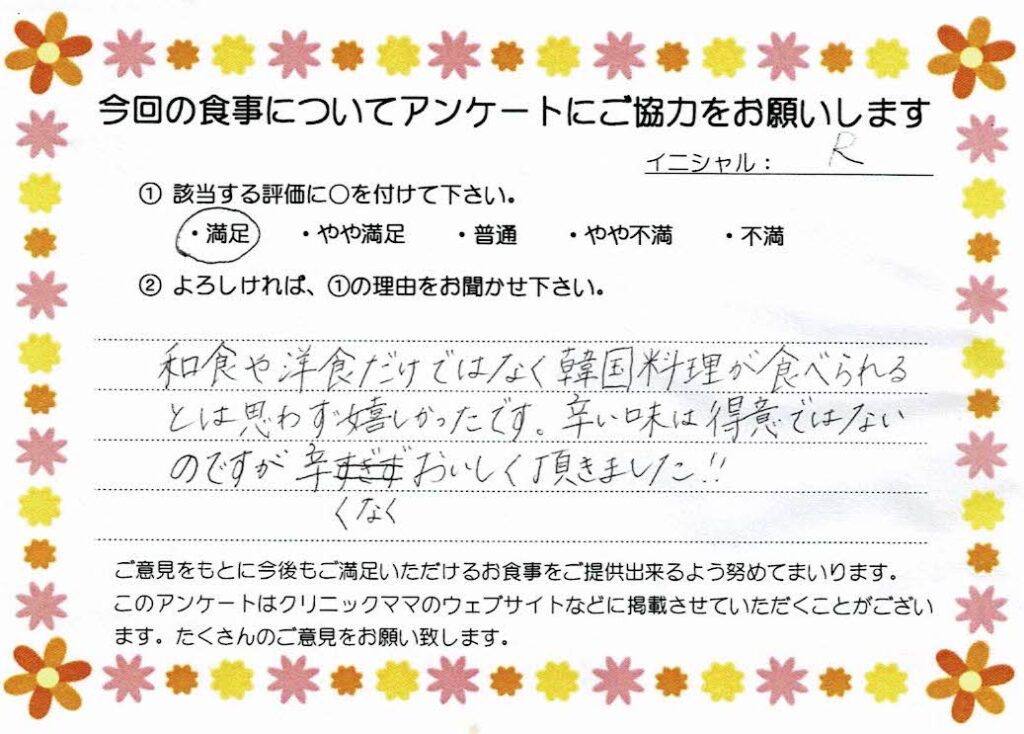 今回の食事についてアンケートにご協力をお願いします
イニシャル： R
① 該当する評価に○を付けて下さい。
・満足 ・やや満足 ・普通 ・やや不満 ・不満
② よろしければ、①の理由をお聞かせ下さい。
和食や洋食だけではなく韓国料理が食べられる
とは思わず嬉しかったです。辛い味は得意ではない
のですが辛すぎずおいしく頂きました!!
くなく
ご意見をもとに今後もご満足いただけるお食事をご提供出来るよう努めてまいります。
このアンケートはクリニックママのウェブサイトなどに掲載させていただくことがござい
ます。たくさんのご意見をお願い致します。